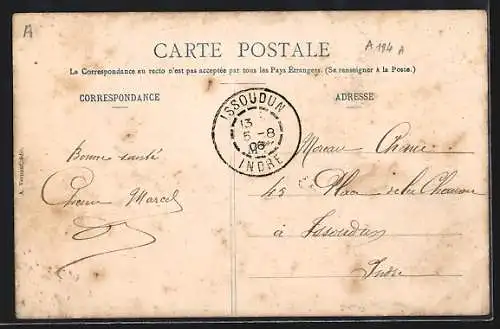 A
A 194 A
CARTE POSTALE
La Correspondance au recto n'est pas acceptée par tous les Pays Étrangers. (Se renseigner à la Poste.)
CORRESPONDANCE
ADRESSE
ISSOUDUN
13
5-8
08
INDRE
Bonne santé
Marcel
45 Place de la
à Issoudun
Indre